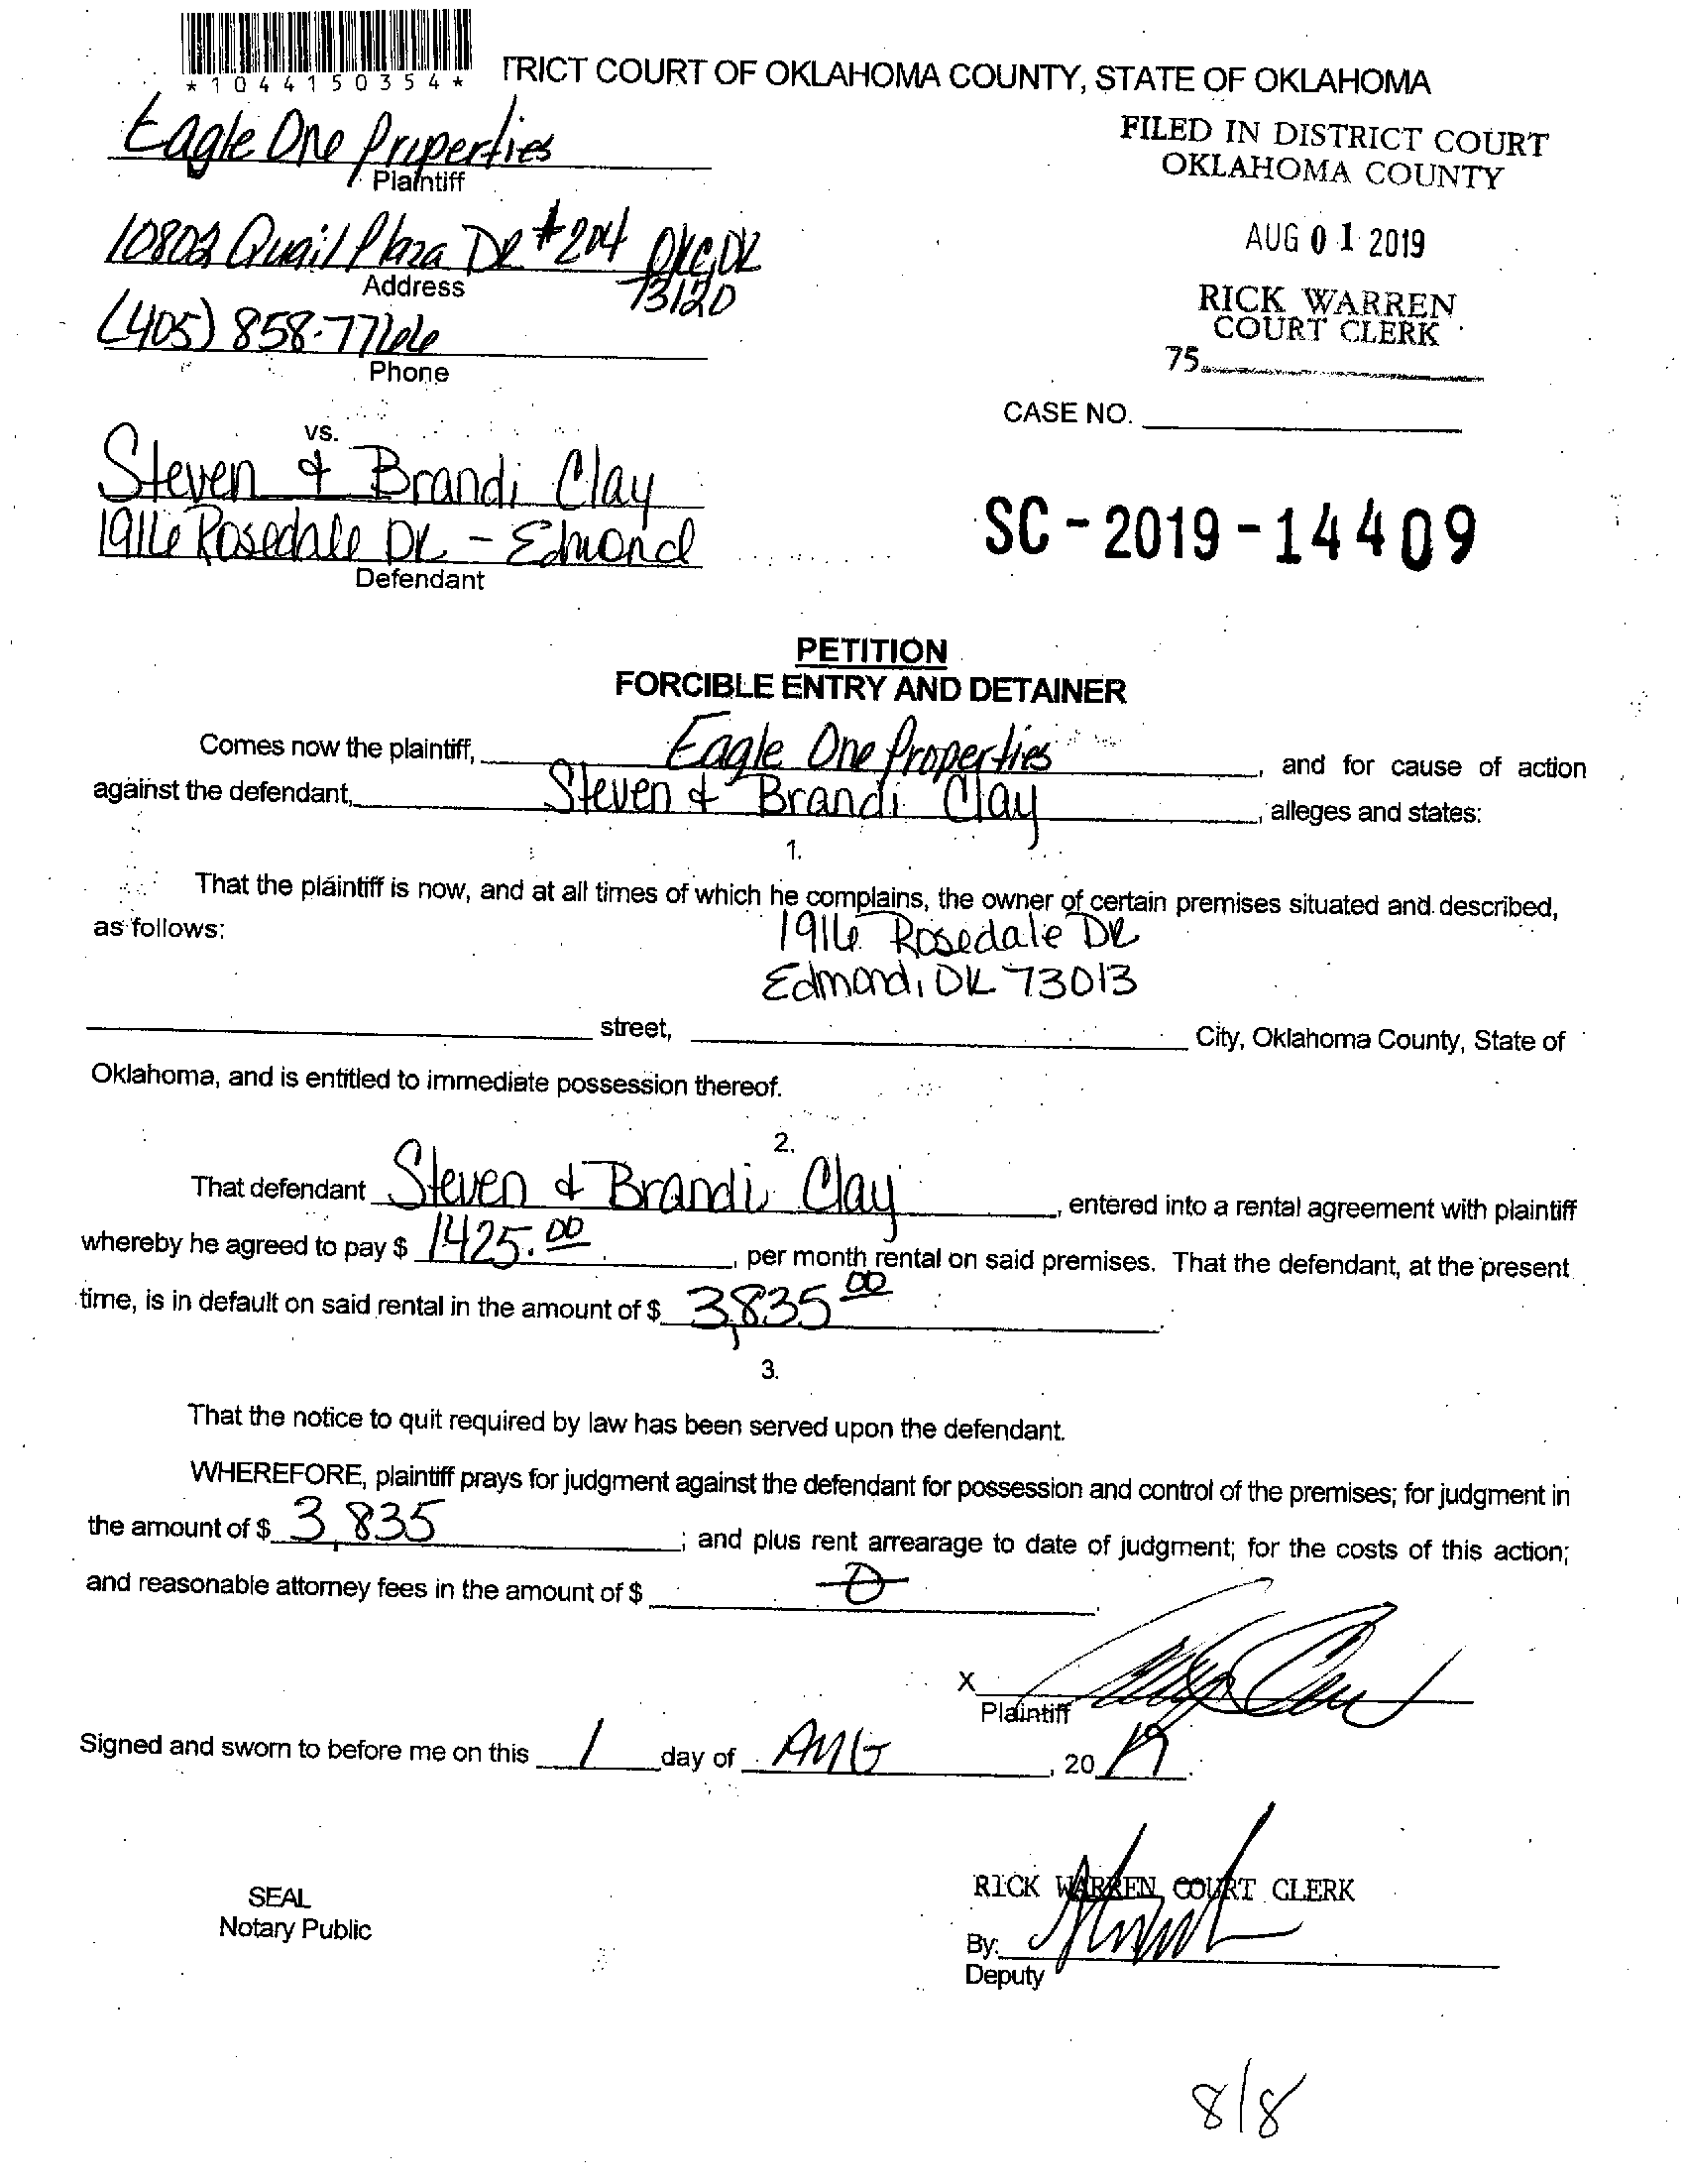 *1044150354*
TRICT COURT OF OKLAHOMA COUNTY, STATE OF OKLAHOMA
Eagle One Properties
Plaintiff
FILED IN DISTRICT COURT
OKLAHOMA COUNTY
10802 Quail Plaza DR #204 OKC, OK
73120
Address
AUG 01 2019
(405) 858-7766
Phone
RICK WARREN
COURT CLERK
75
CASE NO.
vs.
Steven & Brandi Clay
1916 Rosedale DR - Edmond
Defendant
SC-2019-14409
PETITION
FORCIBLE ENTRY AND DETAINER
Comes now the plaintiff, Eagle One Properties, and for cause of action
against the defendant, Steven & Brandi Clay, alleges and states:
1.
That the plaintiff is now, and at all times of which he complains, the owner of certain premises situated and described,
as follows:
1916 Rosedale DR
Edmond, OK 73013
street, City, Oklahoma County, State of
Oklahoma, and is entitled to immediate possession thereof.
2.
That defendant Steven & Brandi Clay, entered into a rental agreement with plaintiff
whereby he agreed to pay $ 1425.00, per month rental on said premises. That the defendant, at the present
time, is in default on said rental in the amount of $ 3,835 00.
3.
That the notice to quit required by law has been served upon the defendant.
WHEREFORE, plaintiff prays for judgment against the defendant for possession and control of the premises; for judgment in
the amount of $ 3,835; and plus rent arrearage to date of judgment; for the costs of this action;
and reasonable attorney fees in the amount of $ 0.
X
Plaintiff
Signed and sworn to before me on this 1 day of AUG, 20 19.
SEAL
Notary Public
RICK WARREN COURT CLERK
By:
Deputy
8/8